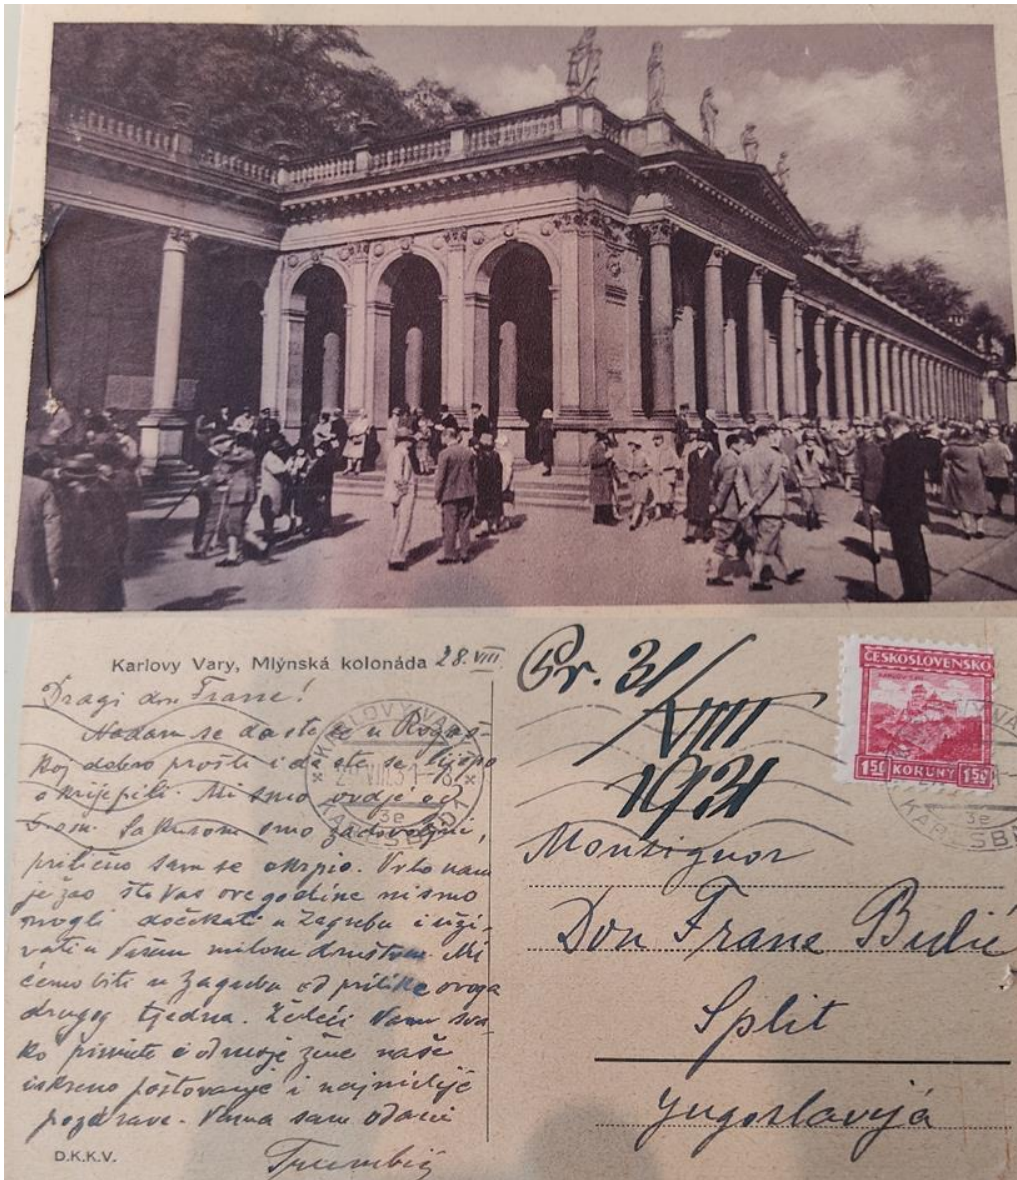 Karlovy Vary, Mlýnská kolonáda 28. VIII
Dragi don Frane!
Nadam se da ste se u Rogaš-
koj dobro prošli i da ste se lijepo
okrijepili. Mi smo ovdje od
5. om. Sa kurom smo zadovoljni,
prilično sam se okrpio. Vrlo nam
je žao što Vas ove godine nismo
mogli dočekati u Zagrebu i uži-
vati u Vašem milom društvu. Mi
ćemo biti u Zagrebu od prilike ovoga
drugog tjedna. Želeći Vam sva-
ko primite i od moje žene naše
iskreno poštovanje i najmilije
pozdrave. Vama sam odani
Trumbić
D.K.K.V.
Pr. 31/
VIII
1931
ČESKOSLOVENSKO
KARLŮV TÝN
150 KORUNY 150
KARLOVY VARY
29.VIII.31-8
3e
KARLSBAD 1
Monsignor
Don Frane Bulić
Split
Jugoslavija